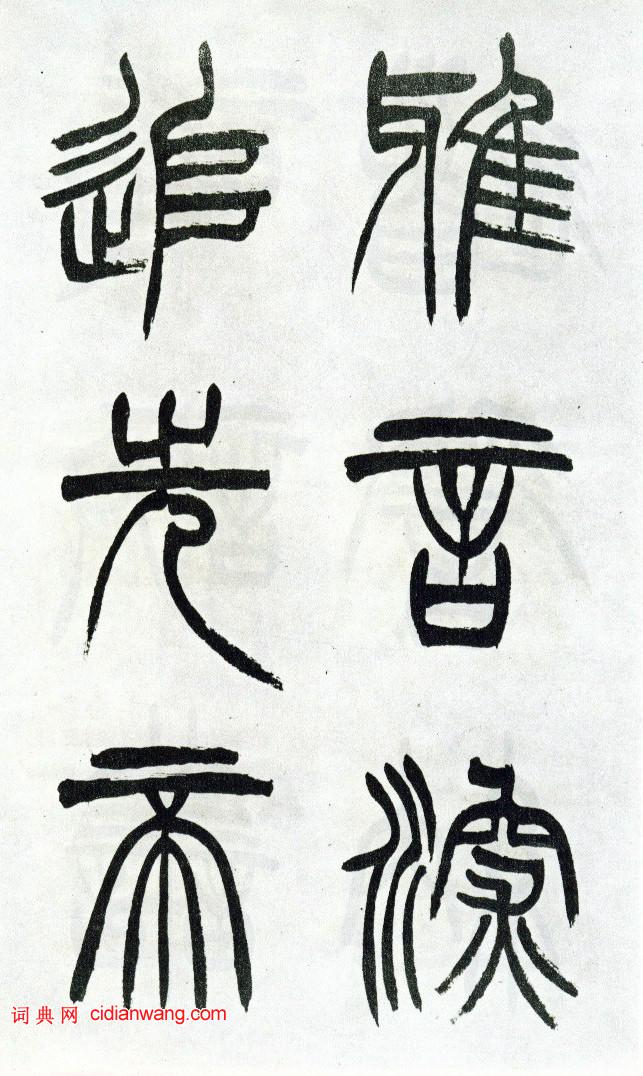 雅言深
追先帝
词典网 cidianwang.com